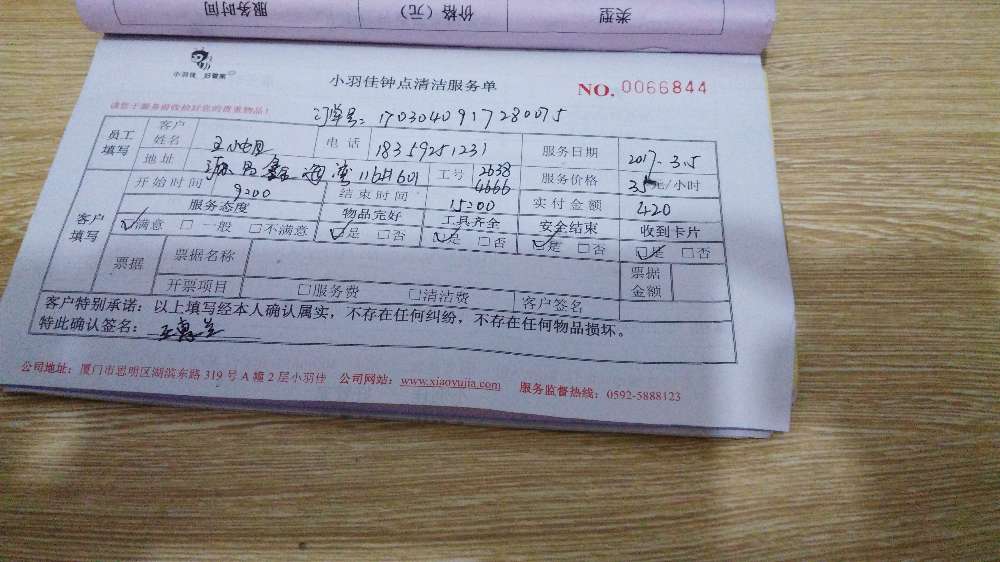 服务时间 价格（元） 类型
小羽佳 好管家
小羽佳钟点清洁服务单
NO. 0066844
请您于服务前收检好您的贵重物品！
订单号：1703040917280075
员工填写 客户姓名 王 电话 18359251231 服务日期 2017.3.5
地址 116#601 工号 2638 4666 服务价格 35元/小时
客户填写 开始时间 9:00 结束时间 15:00 实付金额 420
服务态度 物品完好 工具齐全 安全结束 收到卡片
☑满意 □一般 □不满意 ☑是 □否 ☑是 □否 ☑是 □否 ☑是 □否
票据 票据名称 票据金额
开票项目 □服务费 □清洁费 客户签名
客户特别承诺：以上填写经本人确认属实，不存在任何纠纷，不存在任何物品损坏。
特此确认签名：王惠兰
公司地址：厦门市思明区湖滨东路319号A幢2层小羽佳 公司网站：www.xiaoyujia.com 服务监督热线：0592-5888123